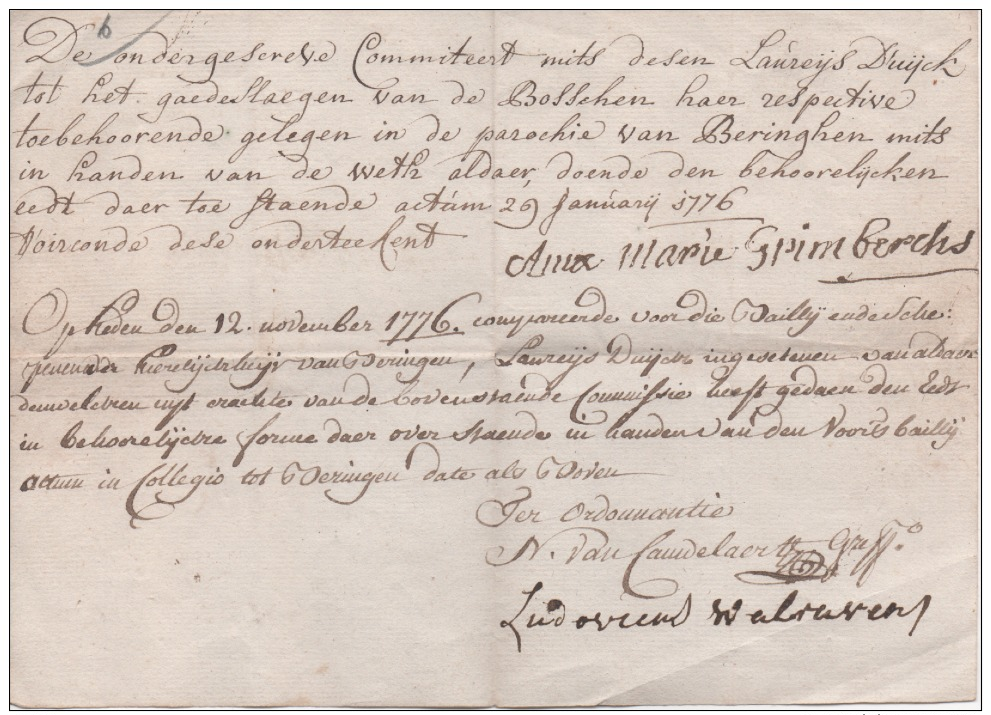 6
De ondergescreve Commiteert mits desen Laureijs Duijck
tot het gaedeslaegen van de Bosschen haer respective
toebehoorende gelegen in de parochie van Beringhen mits
in handen van de weth aldaer, doende den behoorelijcken
eedt daer toe staende actúm 29 Januúarij 1776
Voirconde dese onderteekent
Anna Marie Grimberchs
Op heden den 12. november 1776. compareerde voor die Baillij ende Sche:
penen der heerelijckheijt van Beringen, Laureijs Duijck ingesetenen van aldaer
denwelcken uijt crachte van de bovenstaende Commissie heeft gedaen den Eedt
in behoorelijcke forme daer over staende in handen van den Voors baillij
actum in Collegio tot Beringen date als Boven
Ter Ordonnantie
N. van Caudelaer Greff.o
Ludovicus Walraven